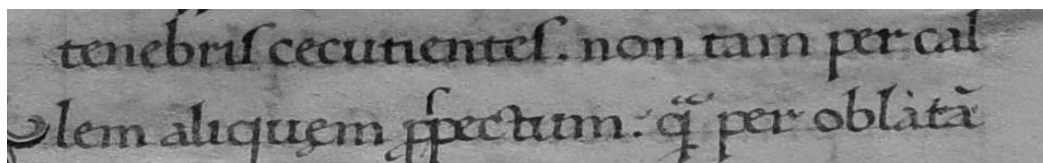 tenebriſ cecutienteſ. non tam per cal
lem aliquęm ꝓſpectum. qͣ per oblatā